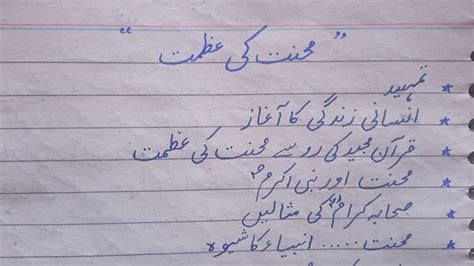 "محنت کی عظمت"
* تمہید
* انسانی زندگی کا آغاز
* قرآن مجید کی رو سے محنت کی عظمت
* محنت اور نبی اکرمؐ
* صحابہ کرامؓ کی مثالیں
* محنت ..... انبیاء کا شیوہ